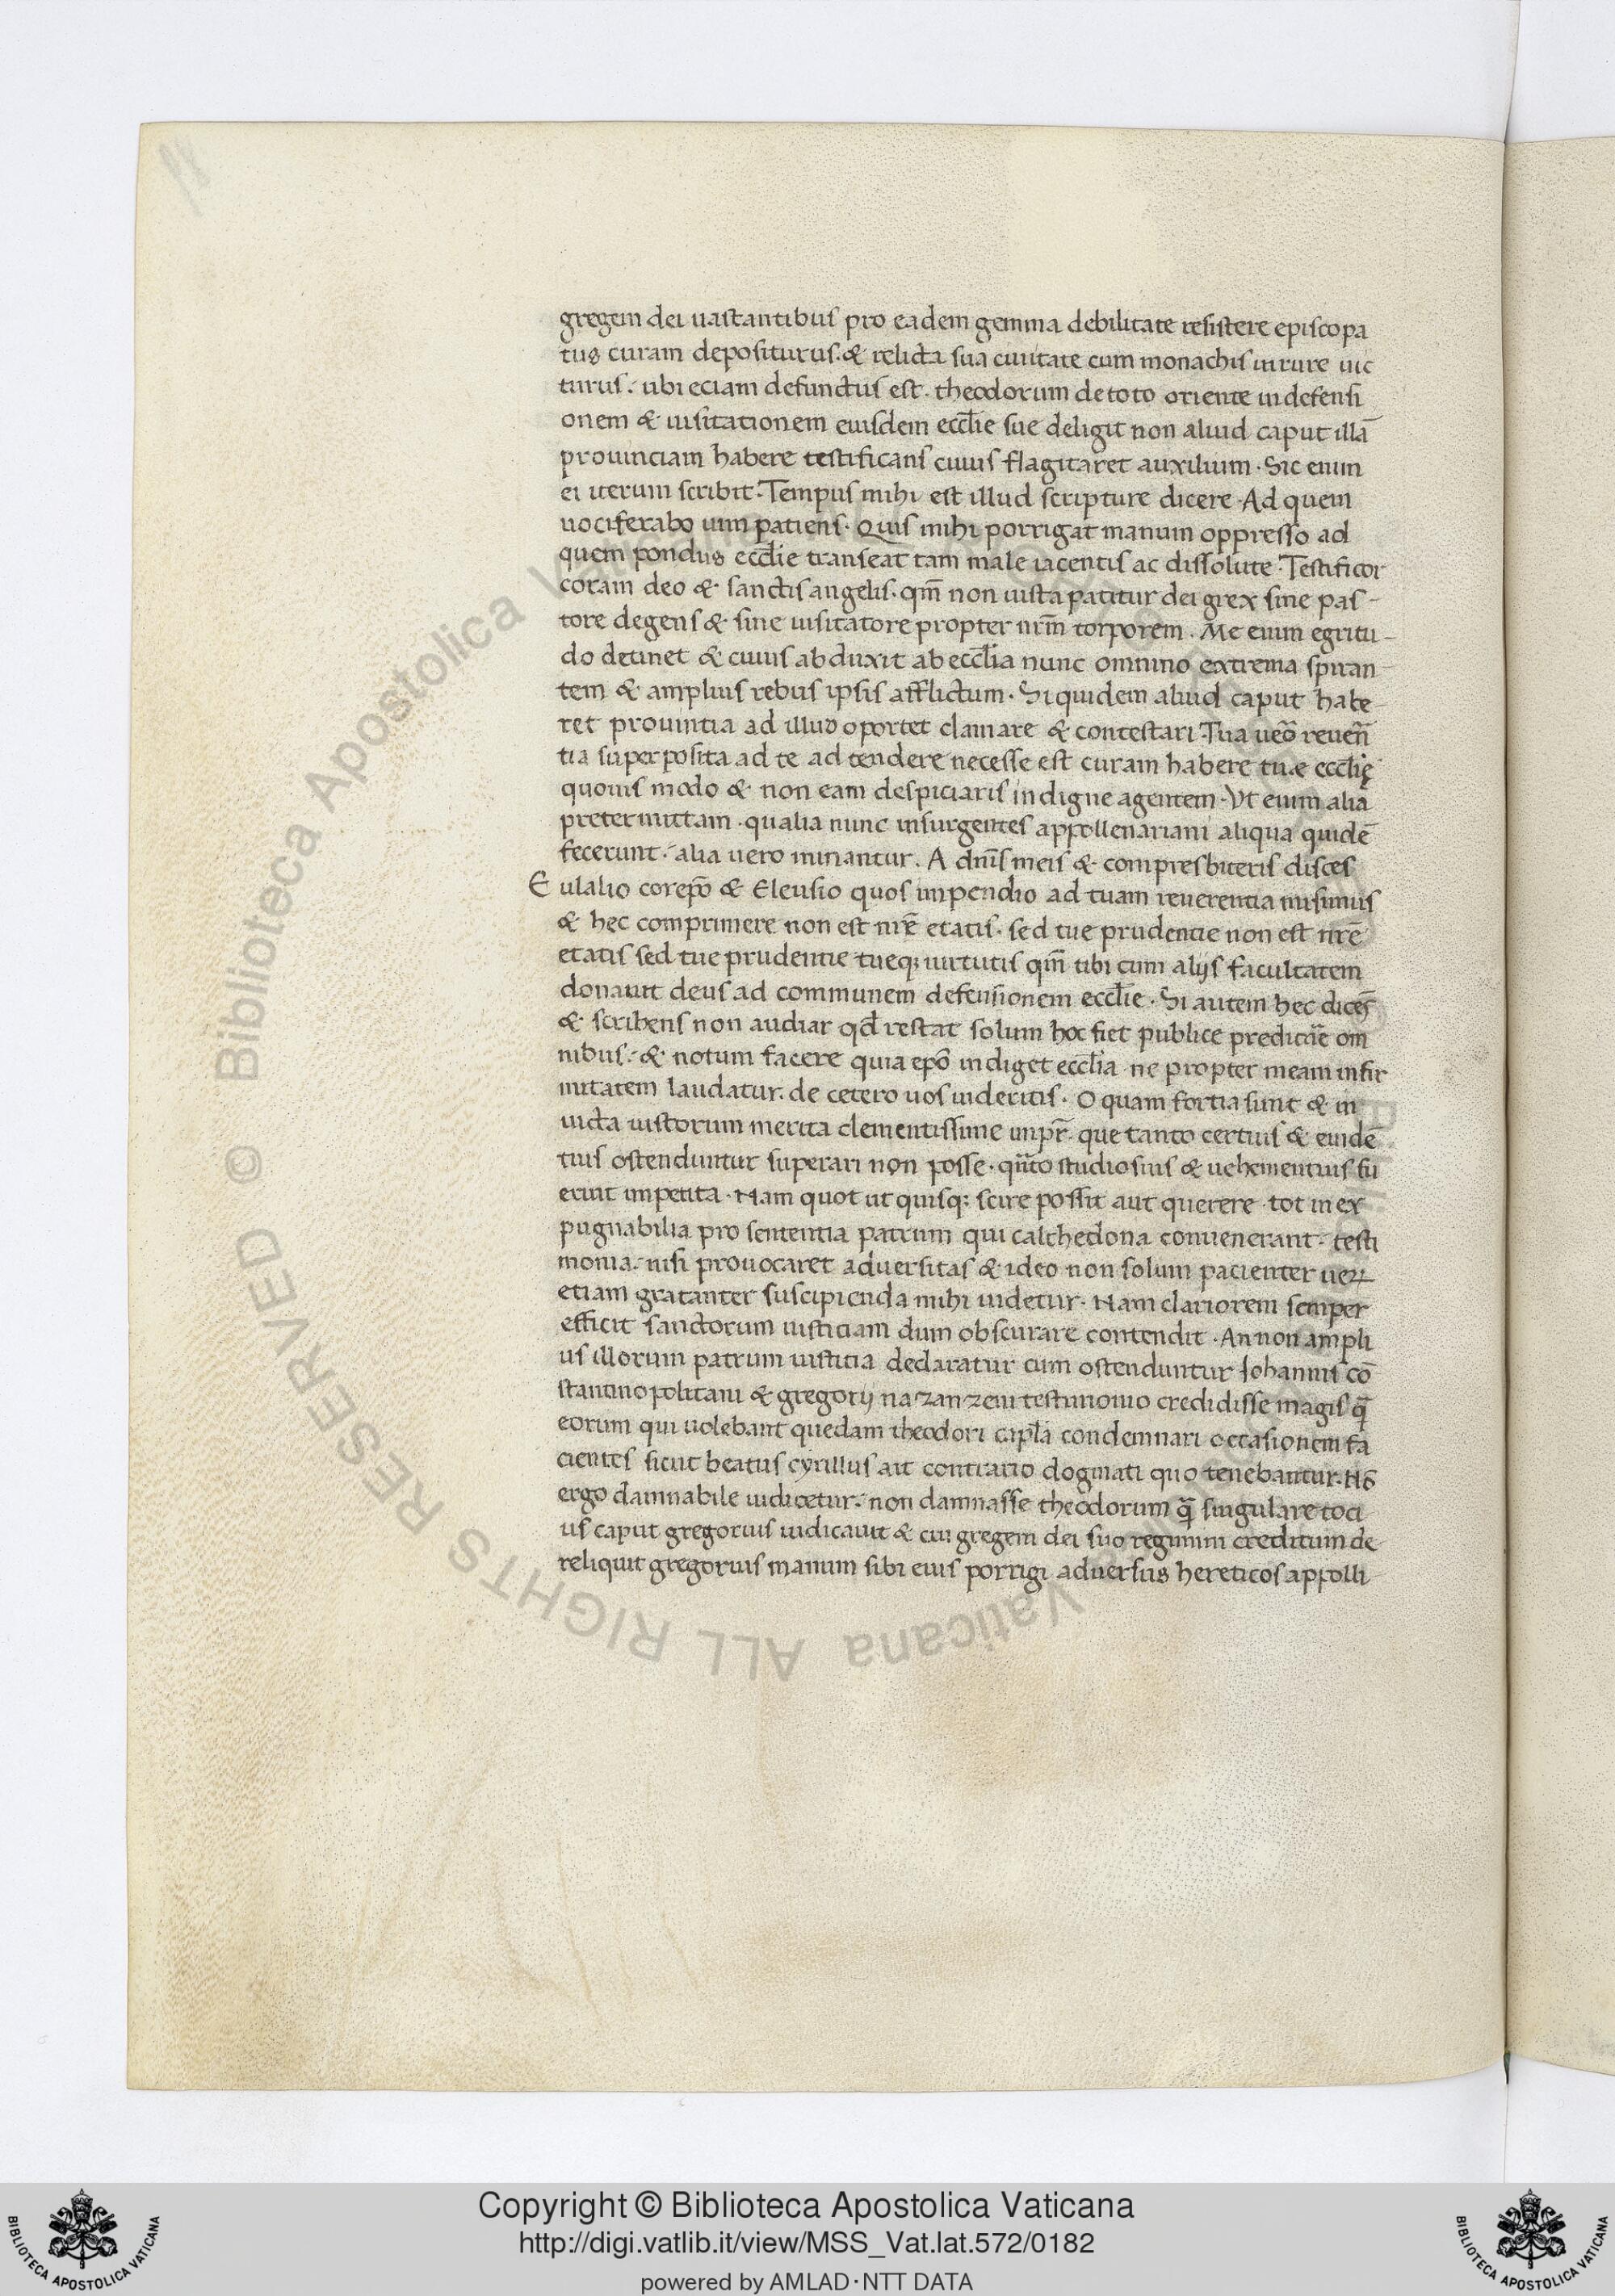 gregem dei uastantibus pro eadem gemma debilitate resistere episcopa
tus curam depositurus. & relicta sua ciuitate cum monachis in rure uic
turus. ubi eciam defunctus est. theodorum de toto oriente in defensi
onem & uisitationem eiusdem eccl̄ie sue deligit non aliud caput illā
prouinciam habere testificans cuius flagitaret auxilium. Sic enim
ei iterum scribit. Tempus mihi est illud scripture dicere. Ad quem
uociferabo uim patiens. Quis mihi porrigat manum oppresso ad
quem pondus eccl̄ie transeat tam male iacentis ac dissolute. Testificor
coram deo & sanctis angelis. qm̄ non iusta patitur dei grex sine pas-
tore degens & sine uisitatore propter nrm̄ torporem. Me enim egritu-
do detinet & cuius abduxit ab eccl̄ia nunc omnino extrema spiran-
tem & amplius rebus ipsis afflictum. Siquidem aliud caput habe-
ret prouintia ad illud oportet clamare & contestari. Tua ueō reuen̄
tia superposita ad te adtendere necesse est curam habere tue eccl̄ię
quouis modo & non eam despiciaris indigne agentem. Vt enim alia
pretermittam. qualia nunc insurgentes appollenariani aliqua quidē
fecerunt. alia uero minantur. A dnīs meis & compresbiteris disces
Eulalio corepō & Eleusio quos impendio ad tuam reuerentia misimus
& hec comprimere non est nrē etatis. sed tue prudentie non est nrē
etatis sed tue prudentie tueq; uirtutis qm̄ tibi cum alijs facultatem
donauit deus ad communem defensionem eccl̄ie. Si autem hec dicēs
& scribens non audiar qd̄ restat solum hoc fiet publice predicāe om
nibus. & notum facere quia epō indiget eccl̄ia ne propter meam infir
mitatem laudatur. de cetero uos uideritis. O quam fortia sunt & in
uicta iustorum merita clementissime impr̄. que tanto certius & euidē
tius ostenduntur superari non posse. qn̄to studiosius & uehementius fu
erint impetita. Nam quot ut quisq; scire possit aut querere tot inex
pugnabilia pro sententia patrum qui calchedona conuenerant. testi
monia. nisi prouocaret aduersitas & ideo non solum pacienter ueꝝ
etiam gratanter suscipienda mihi uidetur. Nam clariorem semper
efficit sanctorum iusticiam dum obscurare contendit. An non ampli
us illorum patrum iustitia declaratur cum ostenduntur Iohannis cō
stantinopolitani & gregorij nazanzeni testimonio credidisse magis q̄
eorum qui uolebant quedam theodori capl̄a condemnari occasionem fa
cientes sicut beatus cyrillus ait contrario dogmati quo tenebantur. Nō
ergo damnabile iudicetur. non damnasse theodorum q̄ singulare toci
us caput gregorius iudicauit & cui gregem dei suo regimini creditum de
reliquit gregorius manum sibi eius porrigi aduersus hereticos appolli
© Biblioteca Apostolica Vaticana ALL RIGHTS RESERVED
Copyright © Biblioteca Apostolica Vaticana
http://digi.vatlib.it/view/MSS_Vat.lat.572/0182
powered by AMLAD·NTT DATA
BIBLIOTECA APOSTOLICA VATICANA
BIBLIOTECA APOSTOLICA VATICANA